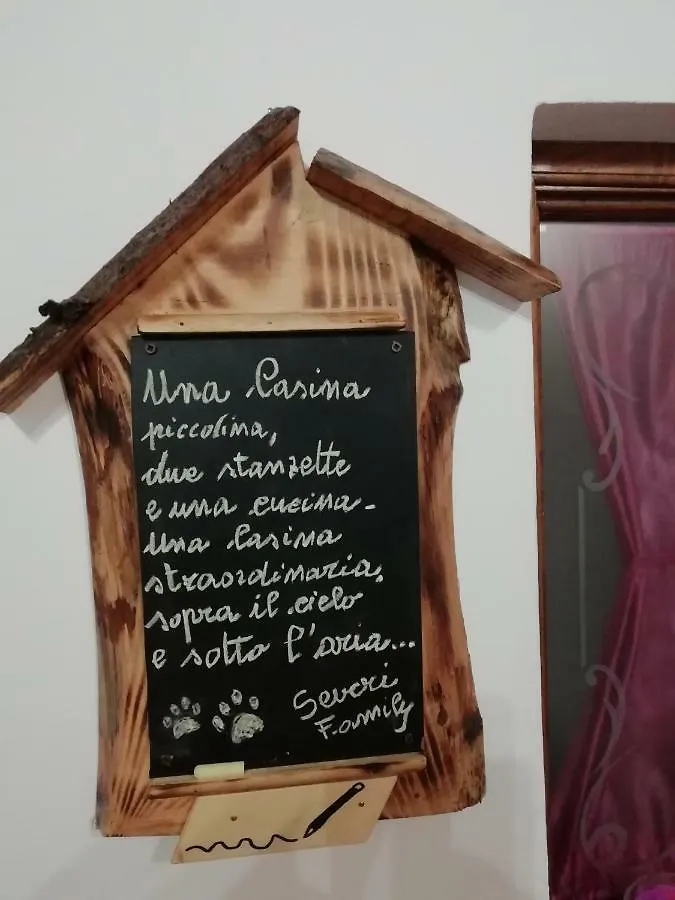 Una Casina
piccolina,
due stanzette
e una cucina.
Una Casina
straordinaria,
sopra il cielo
e sotto l'aria...
Severi
Family